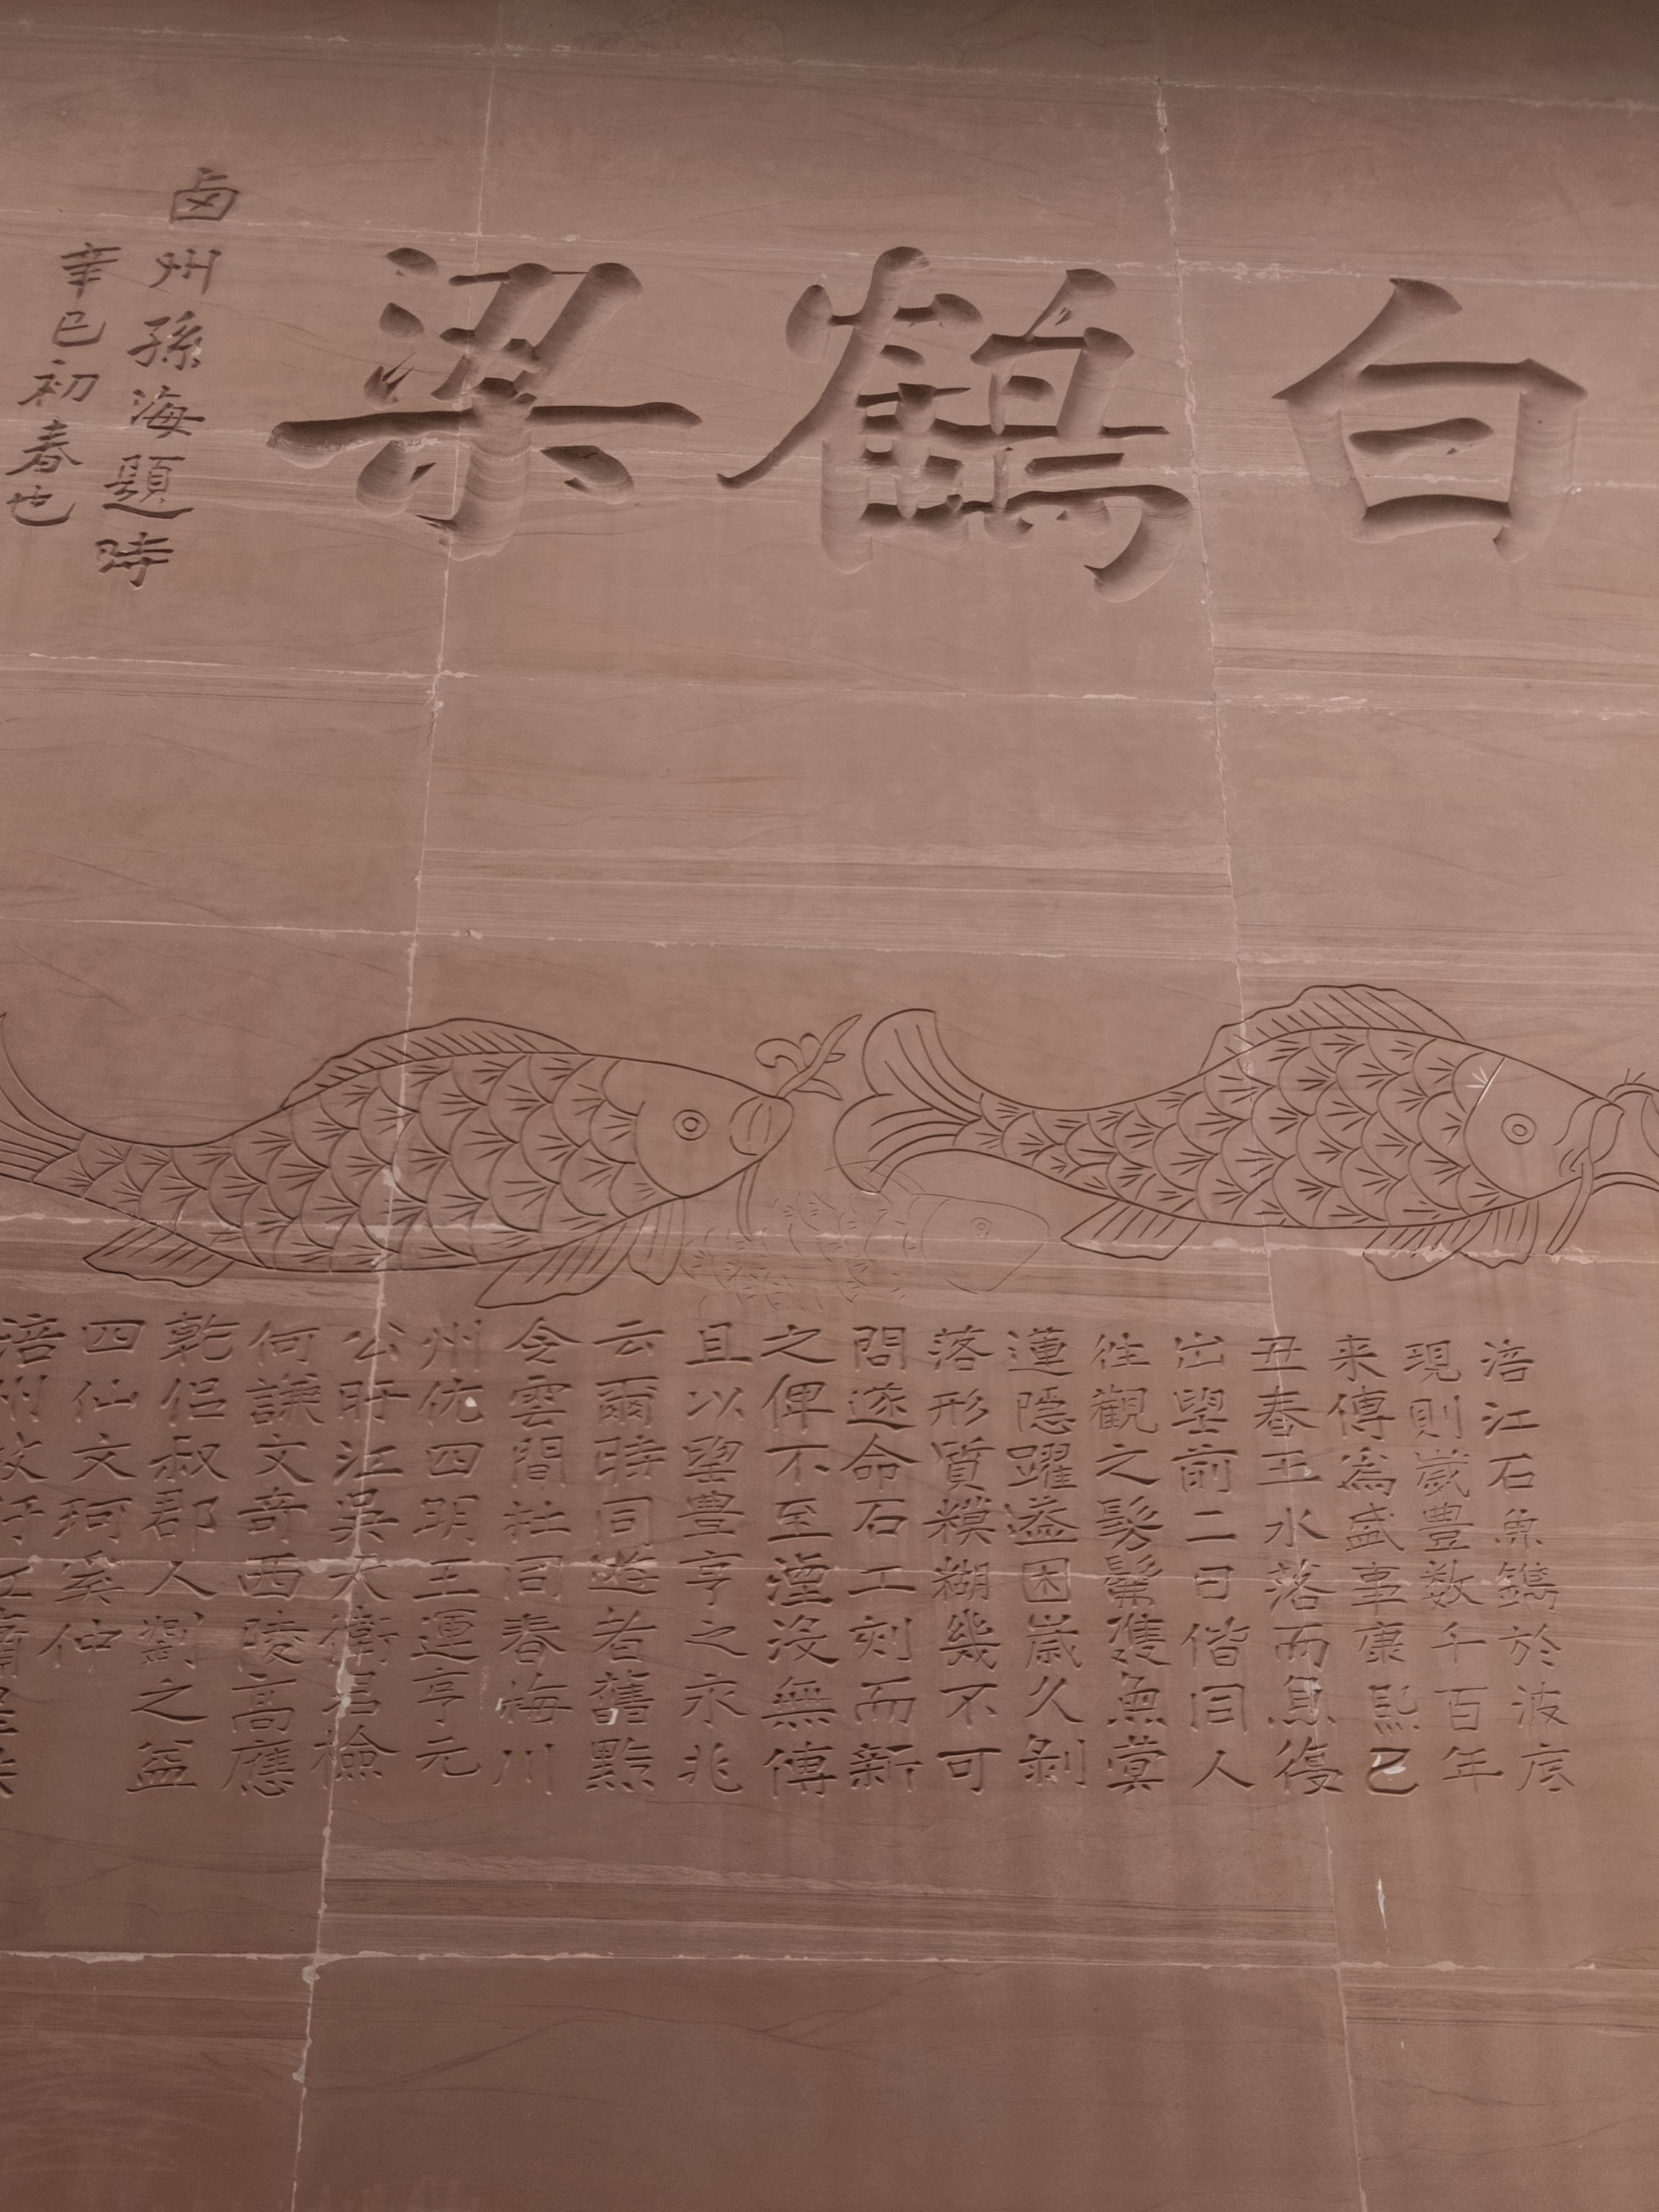 白鶴梁
西州孫海題時
辛巳初春也
涪江石魚鐫於波底
現則歲豐数千百年
来傳為盛事康熙己
丑春王水落而魚復
出望前二日偕同人
往觀之髣髴雙魚蓂
蓮隱躍葢因歲久剝
落形質糢糊幾不可
問遂命石工刻而新
之俾不至湮没無傳
且以望豐亨之永兆
云爾時同遊者舊黙
令雲間杜同春梅川
州佐四明王運亨元
公旴江吳天衡君檢
何謙文奇西陵高應
乾侣叔郡人劉之益
四仙文珂奚仲
涪州牧